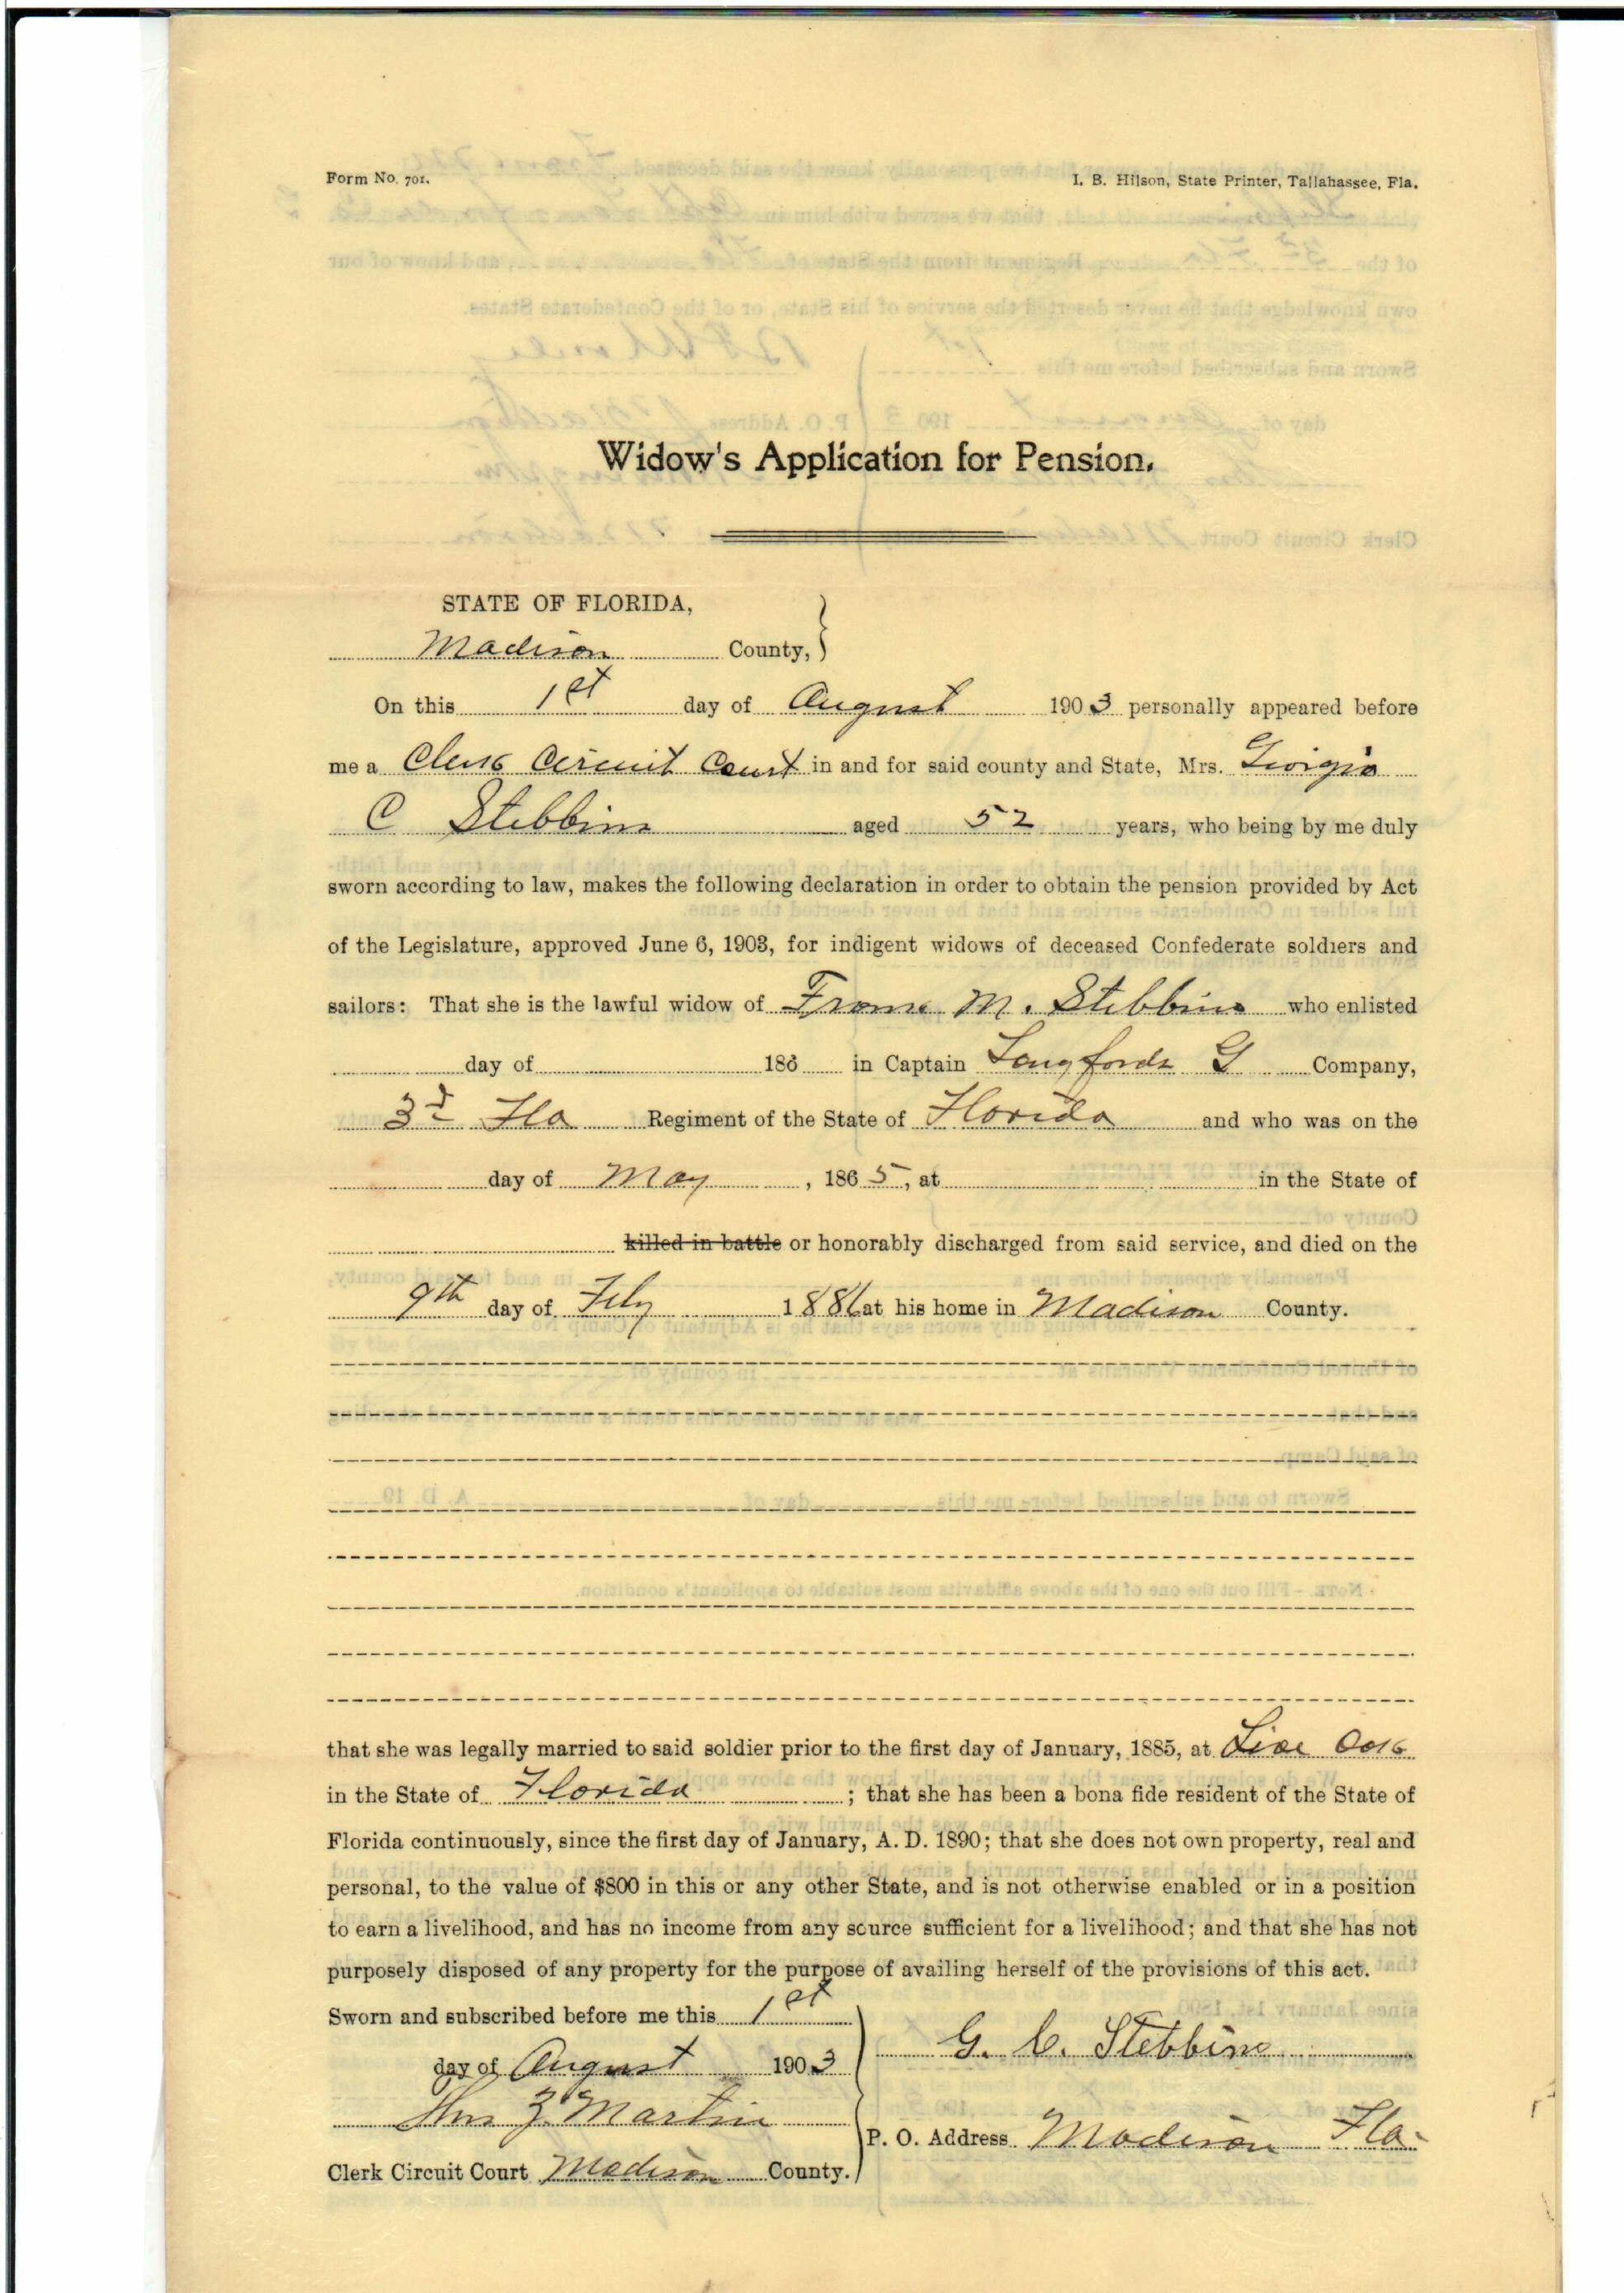 Form No. 701.
I. B. Hilson, State Printer, Tallahassee, Fla.
Widow's Application for Pension.
STATE OF FLORIDA,
Madison County,
On this 1st day of August 1903 personally appeared before
me a Clerk Circuit Court in and for said county and State, Mrs. Georgia
C Stebbins aged 52 years, who being by me duly
sworn according to law, makes the following declaration in order to obtain the pension provided by Act
of the Legislature, approved June 6, 1903, for indigent widows of deceased Confederate soldiers and
sailors: That she is the lawful widow of M. Stebbins who enlisted
day of 186 in Captain Langfords G Company,
3d Fla Regiment of the State of Florida and who was on the
day of May, 1865, at in the State of
killed in battle or honorably discharged from said service, and died on the
9th day of Feby 1886 at his home in Madison County.
that she was legally married to said soldier prior to the first day of January, 1885, at Live Oak
in the State of Florida ; that she has been a bona fide resident of the State of
Florida continuously, since the first day of January, A. D. 1890; that she does not own property, real and
personal, to the value of $800 in this or any other State, and is not otherwise enabled or in a position
to earn a livelihood, and has no income from any source sufficient for a livelihood; and that she has not
purposely disposed of any property for the purpose of availing herself of the provisions of this act.
Sworn and subscribed before me this 1st
day of August 1903
G. C. Stebbins
Martin
P. O. Address Madison Fla.
Clerk Circuit Court Madison County.